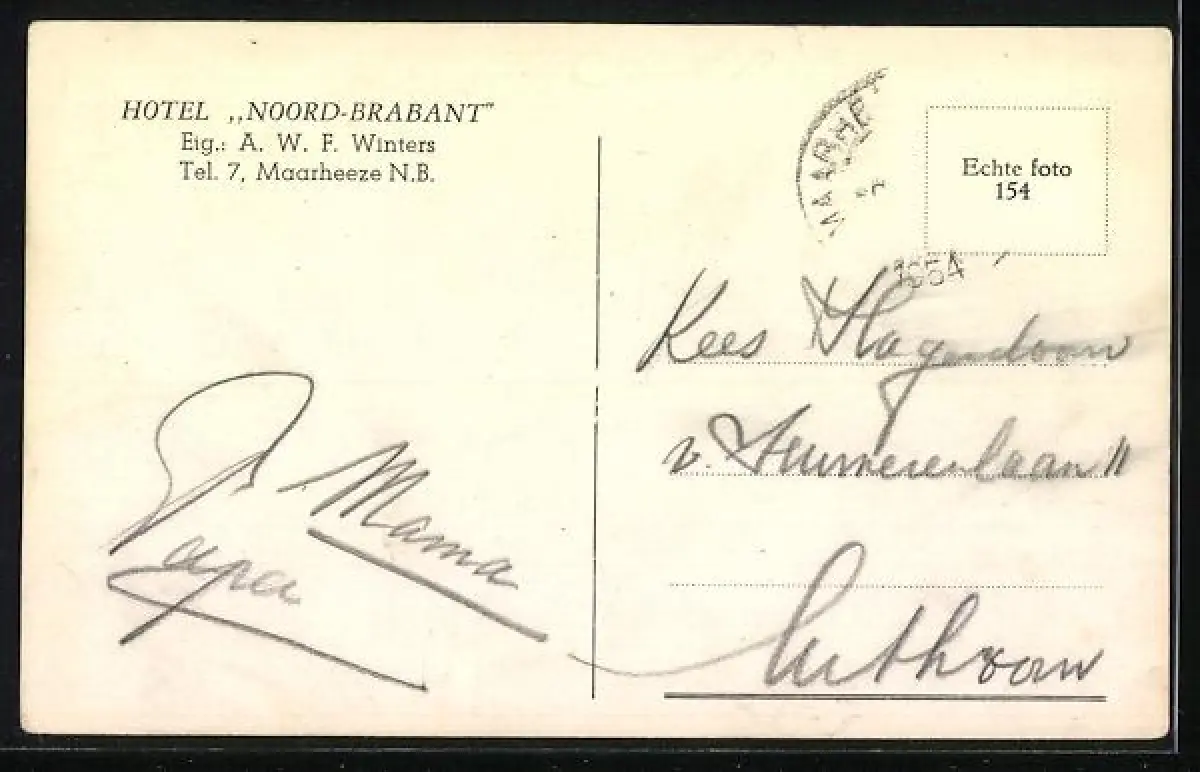 HOTEL „NOORD-BRABANT"
Eig.: A. W. F. Winters
Tel. 7, Maarheeze N.B.
MAARHE
1954
Echte foto
154
Kees Hagendoorn
v. laan 11
Mama
Papa